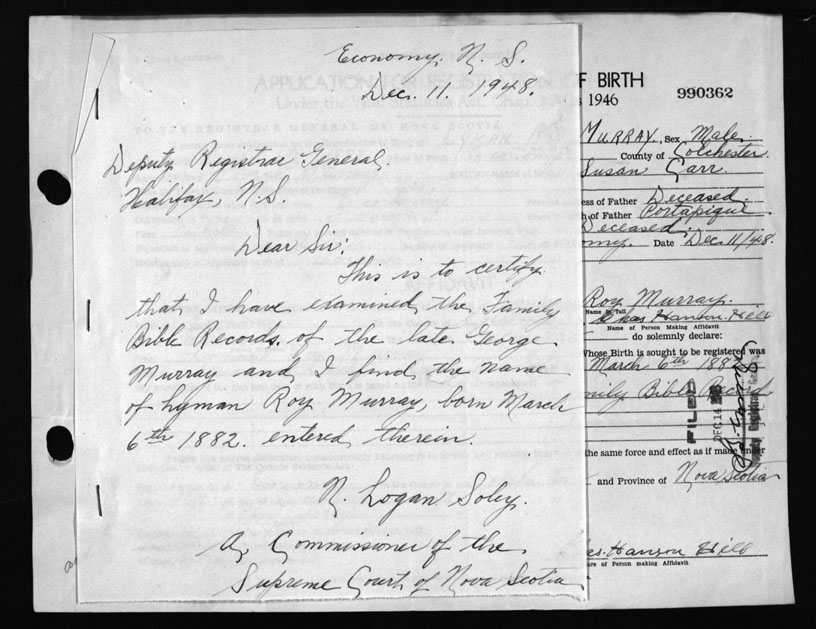 Economy, N. S.
Dec. 11. 1948.
Deputy Registrar General.
Halifax, N.S.
Dear Sir:
This is to certify
that I have examined the Family
Bible Records of the late George
Murray and I find the name
of Lyman Roy Murray, born March
6th 1882. entered therein.
N. Logan Soley.
A Commissioner of the
Supreme Court of Nova Scotia
F BIRTH
1946
990362
MURRAY, Sex Male
County of Colchester
Susan Carr
ess of Father Deceased
h of Father Portapique
Deceased
omy. Date Dec 11/48.
Roy Murray.
Name in full
Chas Hanson Hill
Name of Person Making Affidavit
do solemnly declare:
Whose Birth is sought to be registered was
March 6th 188
mily Bible Record
FILED
DEC 14
the same force and effect as if made under
and Province of Nova Scotia
as. Hanson Hill
ure of Person making Affidavit